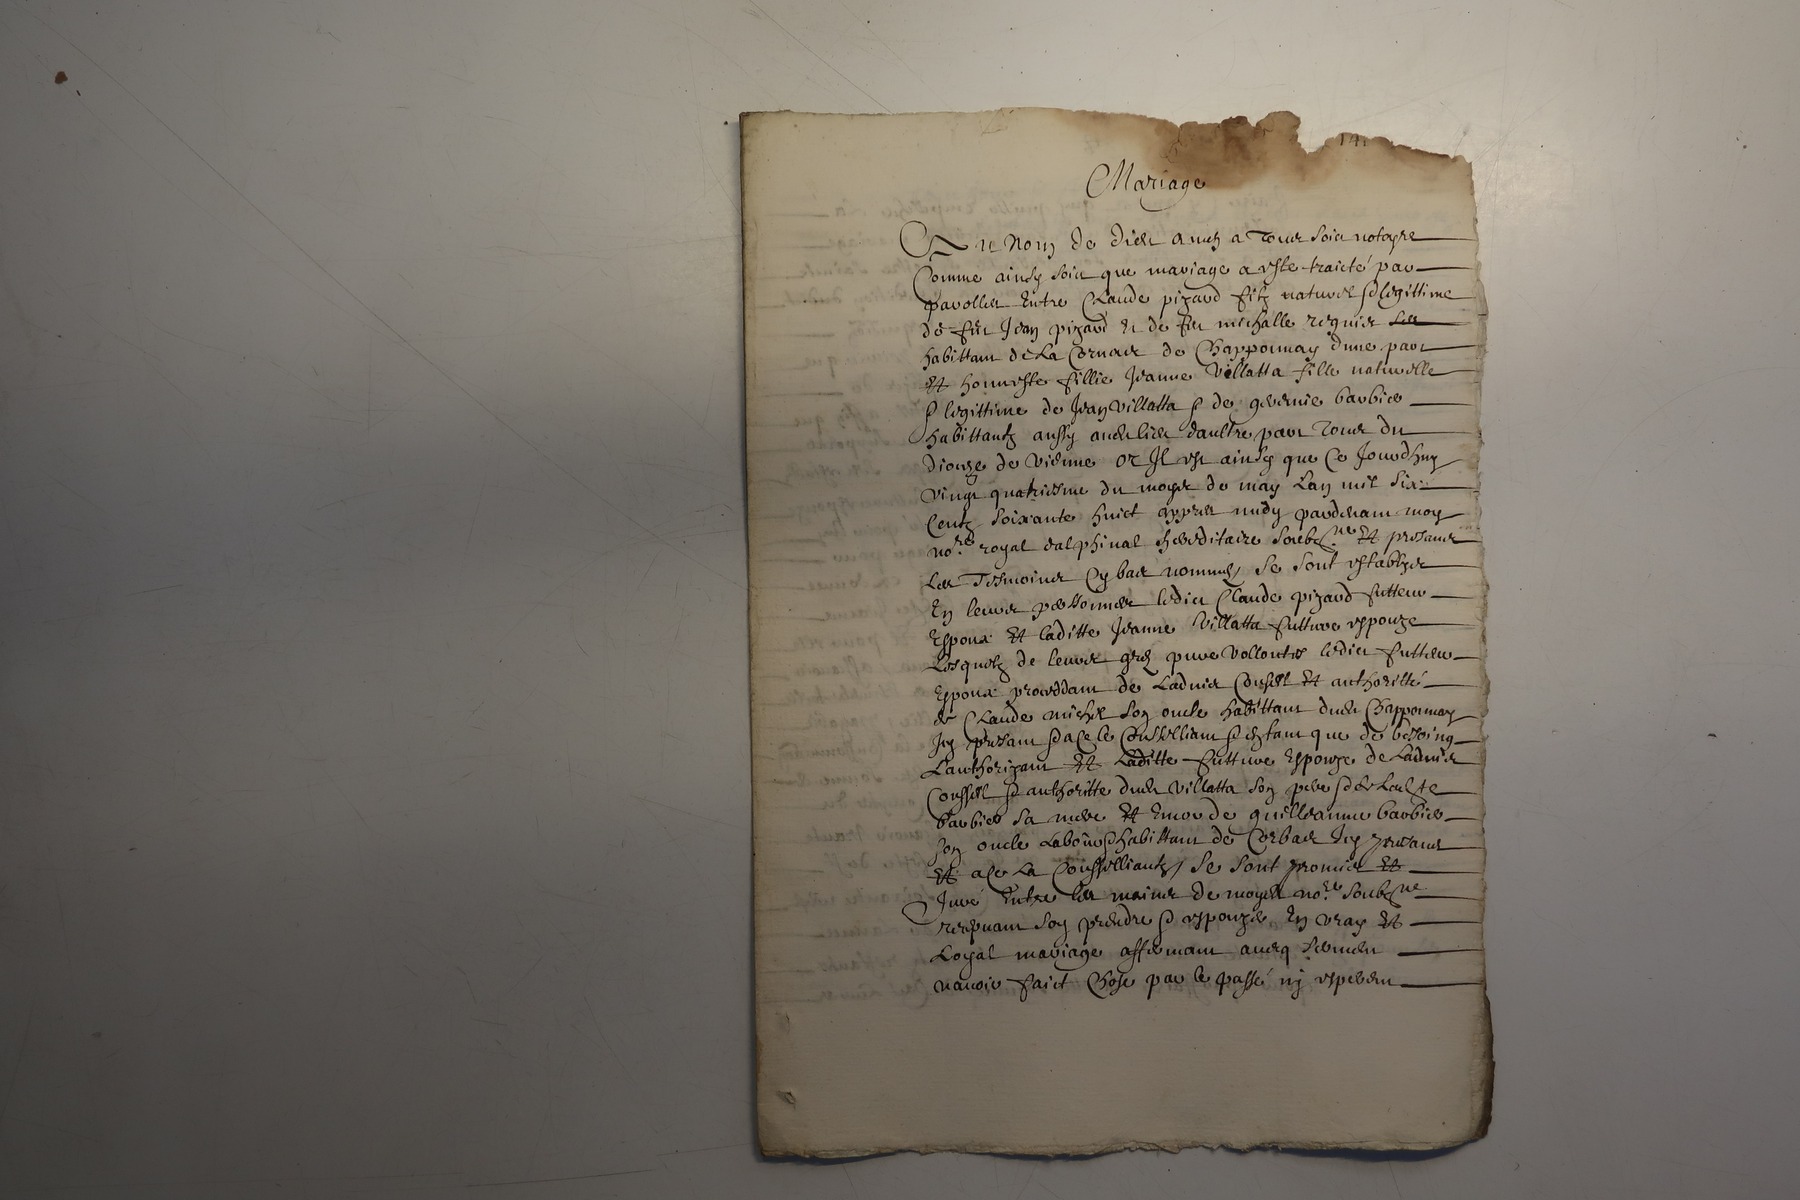 141
Mariage
Au Nom de dieu amen a tous soict notoyre
Comme ainsy soict que mariage a este traicté par
parolles Entre Claude pizard filz naturel & legittime
de feu Jean pizard et de feu michalle regnier
habittant de La de Chapponnay dune part
Et honneste fillie Jeanne Villatta fille naturelle
& legittime de Jean Villatta & de barbier
habittantz aussy audit lieu daultre part Tous du
dioceze de Vienne or Il est ainsy que Ce Jourdhuy
vingt quatriesme du moys de may Lan mil six
Centz soixante huict appres midy pardevant moy
nore royal dalphinal hereditaire soubzne Et presantz
Les Tesmoings Cy bas nommes, se sont establys
En leurs personnes ledict Claude pizard futteur
Espoux Et laditte Jeanne Villatta future espouze
Lesquelz de leurs grez pure vollontes ledict futteur
Espoux proceddant de Ladvis Conseil Et authoritté
de Claude michel son oncle habittant dudit Chapponnay
Icy presant & a ce le Conselliant & en tant que de besoing
Lauthorizant Et Laditte future Espouze de Ladvis
Conseil & authoritte dudit Villatta son pere &
barbier sa mere Et de guilleaume barbier
son oncle Laboureur habittant de Corbas Icy presantz
Et a ce La Conselliantz, se sont promis Et
Juré Entre les mains de moydit nore soubzne
son prendre & espouzer En vray Et
Loyal mariage affermant avecq serment
navoir faict Chose par le passé ny esperent